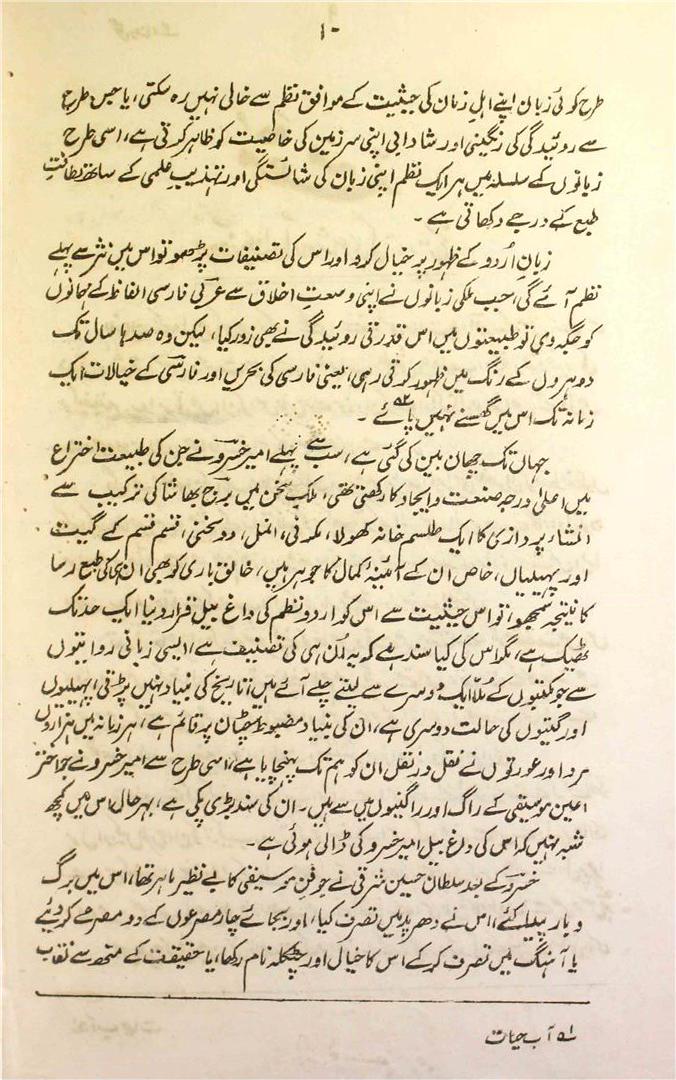 ۱۰
طرح کوئی زبان اپنے اہل زمان کی حیثیت کے موافق نظم سے خالی نہیں رہ سکتی، یا جس طرح
سے روئیدگی کی رنگینی اور شادابی اپنی سرزمین کی خاصیت کو ظاہر کرتی ہے، اسی طرح
زبانوں کے سلسلہ میں ہر ایک نظم اپنی زبان کی شائستگی اور تہذیب علمی کے ساتھ لطافتِ
طبع کے درجے دکھاتی ہے۔
زبان اُردو کے ظہور پر خیال کرو اور اس کی تصنیفات پڑھو تو اس میں نثر سے پہلے
نظم آئے گی، جب ملکی زبانوں نے اپنی وسعتِ اخلاق سے عربی فارسی الفاظ کے مہمانوں
کو جگہ دی تو طبیعتوں میں اس قدرتی روئیدگی نے بھی زور کیا، لیکن وہ صدہا سال تک
دوہروں کے رنگ میں ظہور کرتی رہی، یعنی فارسی کی بحریں اور فارسی کے خیالات ایک
زمانہ تک اس میں گھسنے نہیں پائے۔
جہاں تک چھان بین کی گئی ہے، سب سے پہلے امیر خسرو نے جن کی طبیعت اختراع
میں اعلیٰ درجہ صنعت و ایجاد کا رکھتی تھی، ملک سخن میں برج بھاشا کی ترکیب سے
انشاء پردازی کا ایک طلسم خانہ کھولا، مکرنی، انمل، دو سخنی، قسم قسم کے گیت
اور پہیلیاں، خاص ان کے آئینۂ کمال کا جوہر ہیں، خالق باری کو بھی ان ہی کی طبع رسا
کا نتیجہ سمجھو، تو اس حیثیت سے اس کو اردو نظم کی داغ بیل قرار دینا ایک حد تک
ٹھیک ہے، مگر اس کی کیا سند ہے کہ یہ اُن ہی کی تصنیف ہے، ایسی زبانی روایتوں
سے جو مکتبوں کے مُلّا ایک دوسرے سے لیتے چلے آئے ہیں، تاریخ کی بنیاد نہیں پڑتی، پہیلیوں
اور گیتوں کی حالت دوسری ہے، ان کی بنیاد مضبوط چٹان پر قائم ہے، ہر زمانہ میں ہزاروں
مرد اور عورتوں نے نقل در نقل ان کو ہم تک پہنچایا ہے، اسی طرح سے امیر خسرو نے جو اختر
اعیں موسیقی کے راگ اور راگنیوں میں سے ہیں۔ ان کی سند بڑی پکی ہے، بہرحال اس میں کچھ
شبہ نہیں کہ اس کی داغ بیل امیر خسرو کی ڈالی ہوئی ہے۔
خسرو کے بعد سلطان حسین شرقی نے جو فن موسیقی کا بے نظیر ماہر تھا، اس میں برگ
و بار پیدا کئے، اس نے دھرپد میں تصرف کیا، اور بجائے چار مصرعوں کے دو مصرعے کر دیئے
یا آہنگ میں تصرف کر کے اس کا خیال اور چٹکلہ نام رکھا، یا حقیقت کے منھ سے نقاب
۱ آب حیات